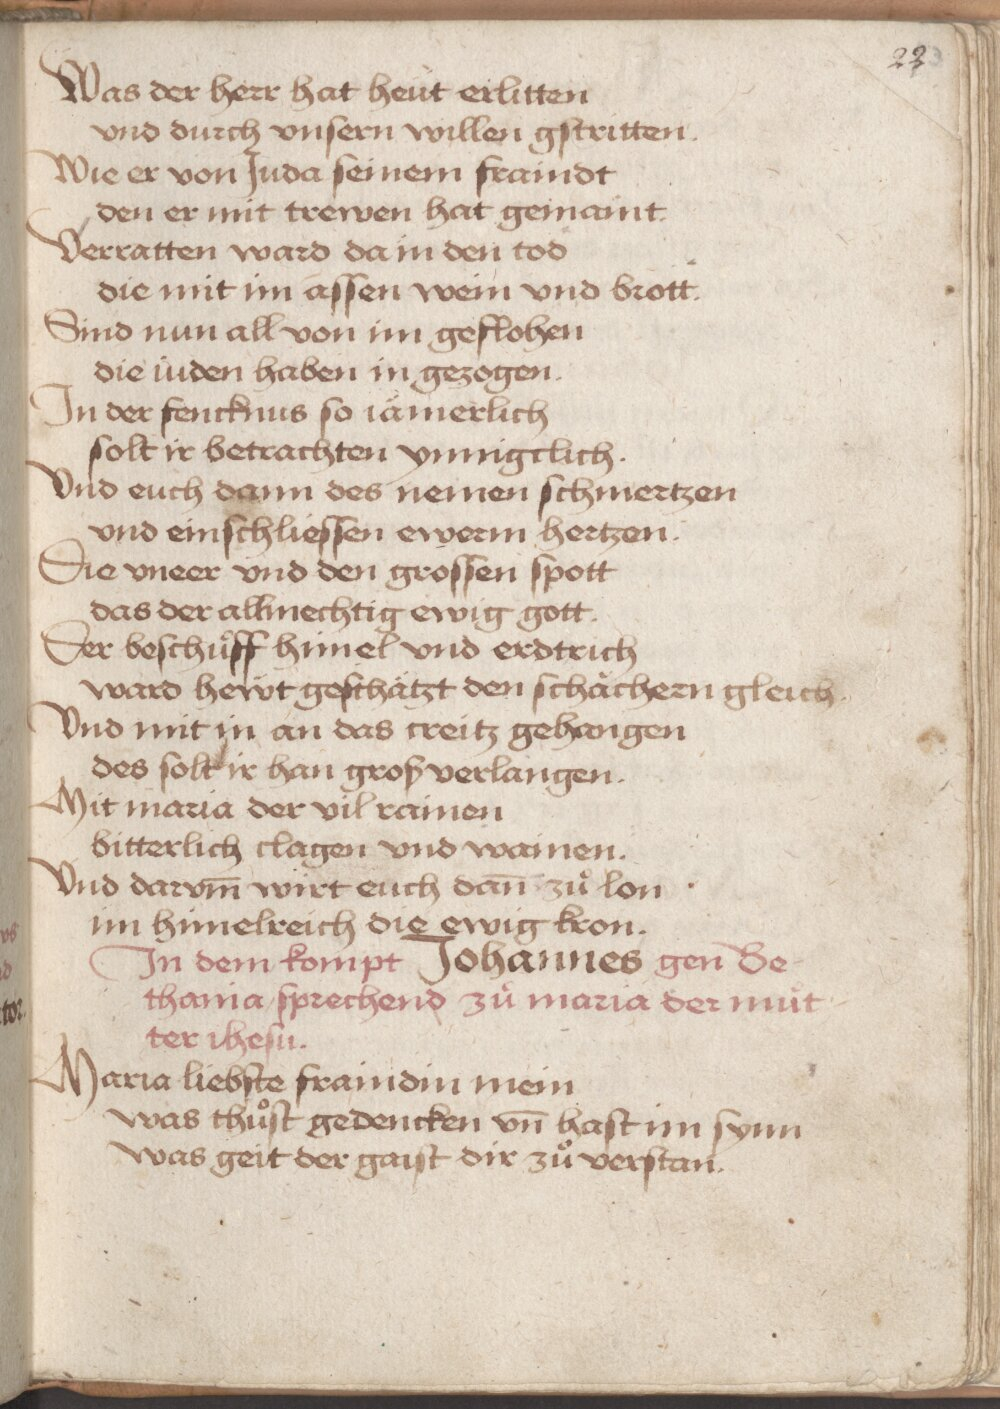 22
Was der herr hat heüt erlitten
vnd durch vnsern willen gstritten.
Wie er von Juda seinem fraindt
den er mit trewen hat gemaint.
Verratten ward da in den tod
die mit im assen wein vnd brott.
Sind nun all von im geflohen
die iuden haben in gezogen.
In der fencknus so iämerlich
solt ir betrachten ynnigclich.
Vnd euch dann des nemen schmertzen
vnd einschliessen ewerm hertzen.
Die vneer vnd den grossen spott
das der allmechtig ewig gott.
Der beschůff himel vnd erdtrich
ward hewt geschätzt den schächern gleich.
Vnd mit in an das creitz gehangen
des solt ir han groß verlangen.
Mit maria der vil rainen
bitterlich clagen vnd wainen.
Vnd darvm̄ wirt euch dan̄ zů lon
im himelreich die ewig kron.
In dem kompt Johannes gen Be-
thania sprechend zů maria der můt
ter ihesu.
Maria liebste fraindin mein
was thůst gedencken vn̄ hast im synn
was geit der gaist dir zů verstan.